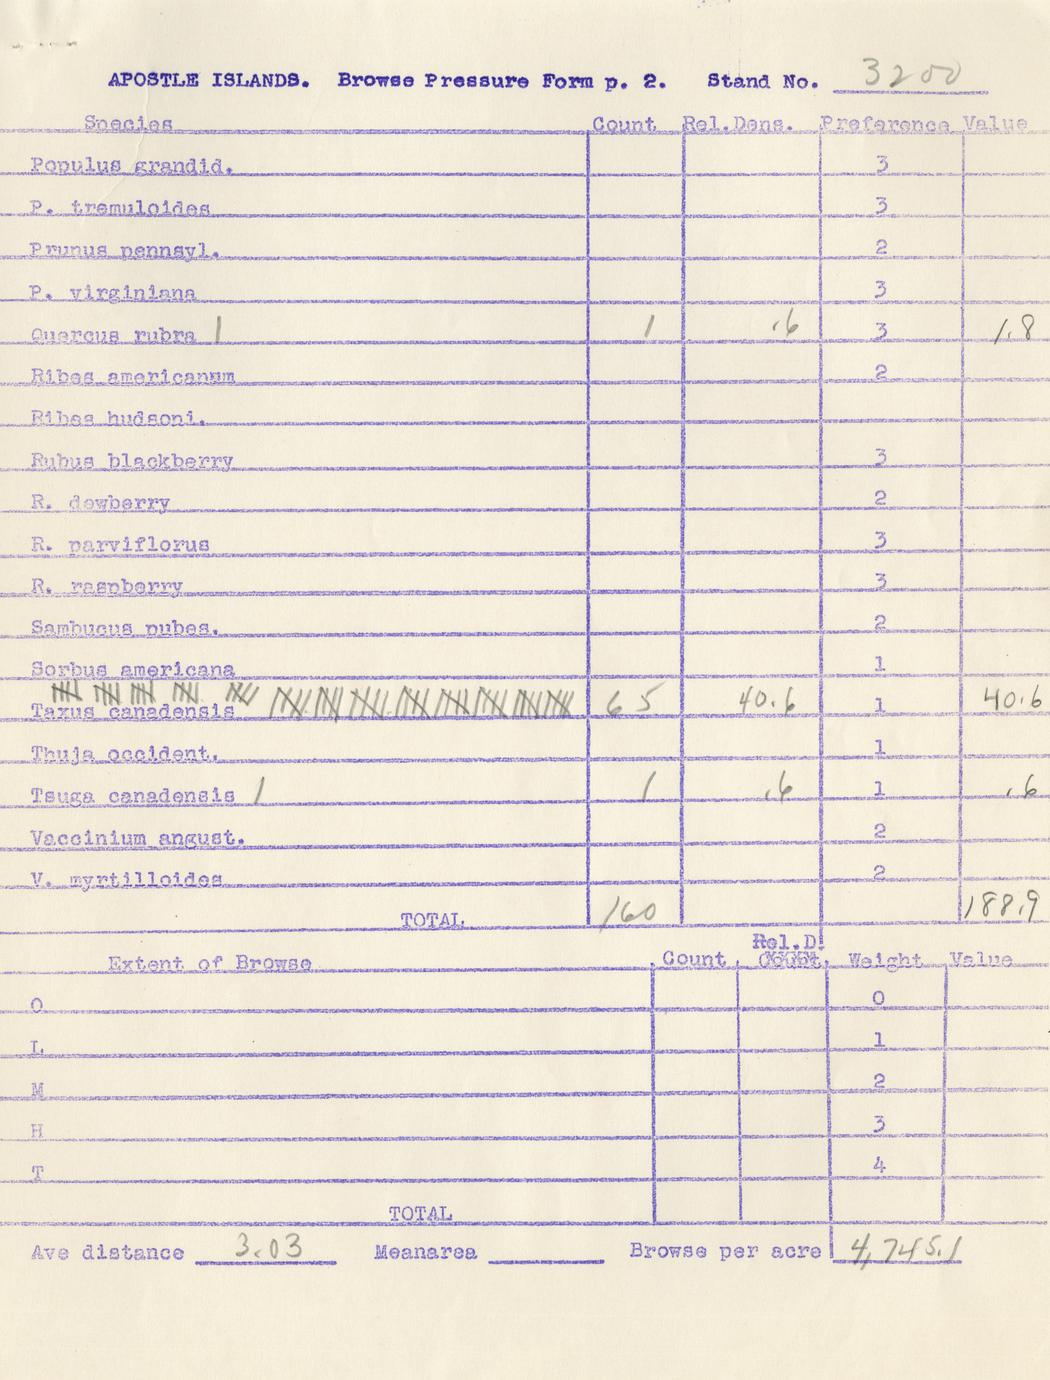 APOSTLE ISLANDS. Browse Pressure Form p. 2. Stand No. 3200
Species Count Rel.Dens. Preference Value
Populus grandid. 3
P. tremuloides 3
Prunus pennsyl. 2
P. virginiana 3
Quercus rubra 1 1 .6 3 1.8
Ribes americanum 2
Ribes hudsoni.
Rubus blackberry 3
R. dewberry 2
R. parviflorus 3
R. raspberry 3
Sambucus pubes. 2
Sorbus americana 1
Taxus canadensis 65 40.6 1 40.6
Thuja occident. 1
Tsuga canadensis 1 1 .6 1 .6
Vaccinium angust. 2
V. myrtilloides 2
TOTAL 160 188.9
Rel.D.
Extent of Browse Count Count. Weight Value
O 0
L 1
M 2
H 3
T 4
TOTAL
Ave distance 3.03 Meanarea Browse per acre 4,745.1